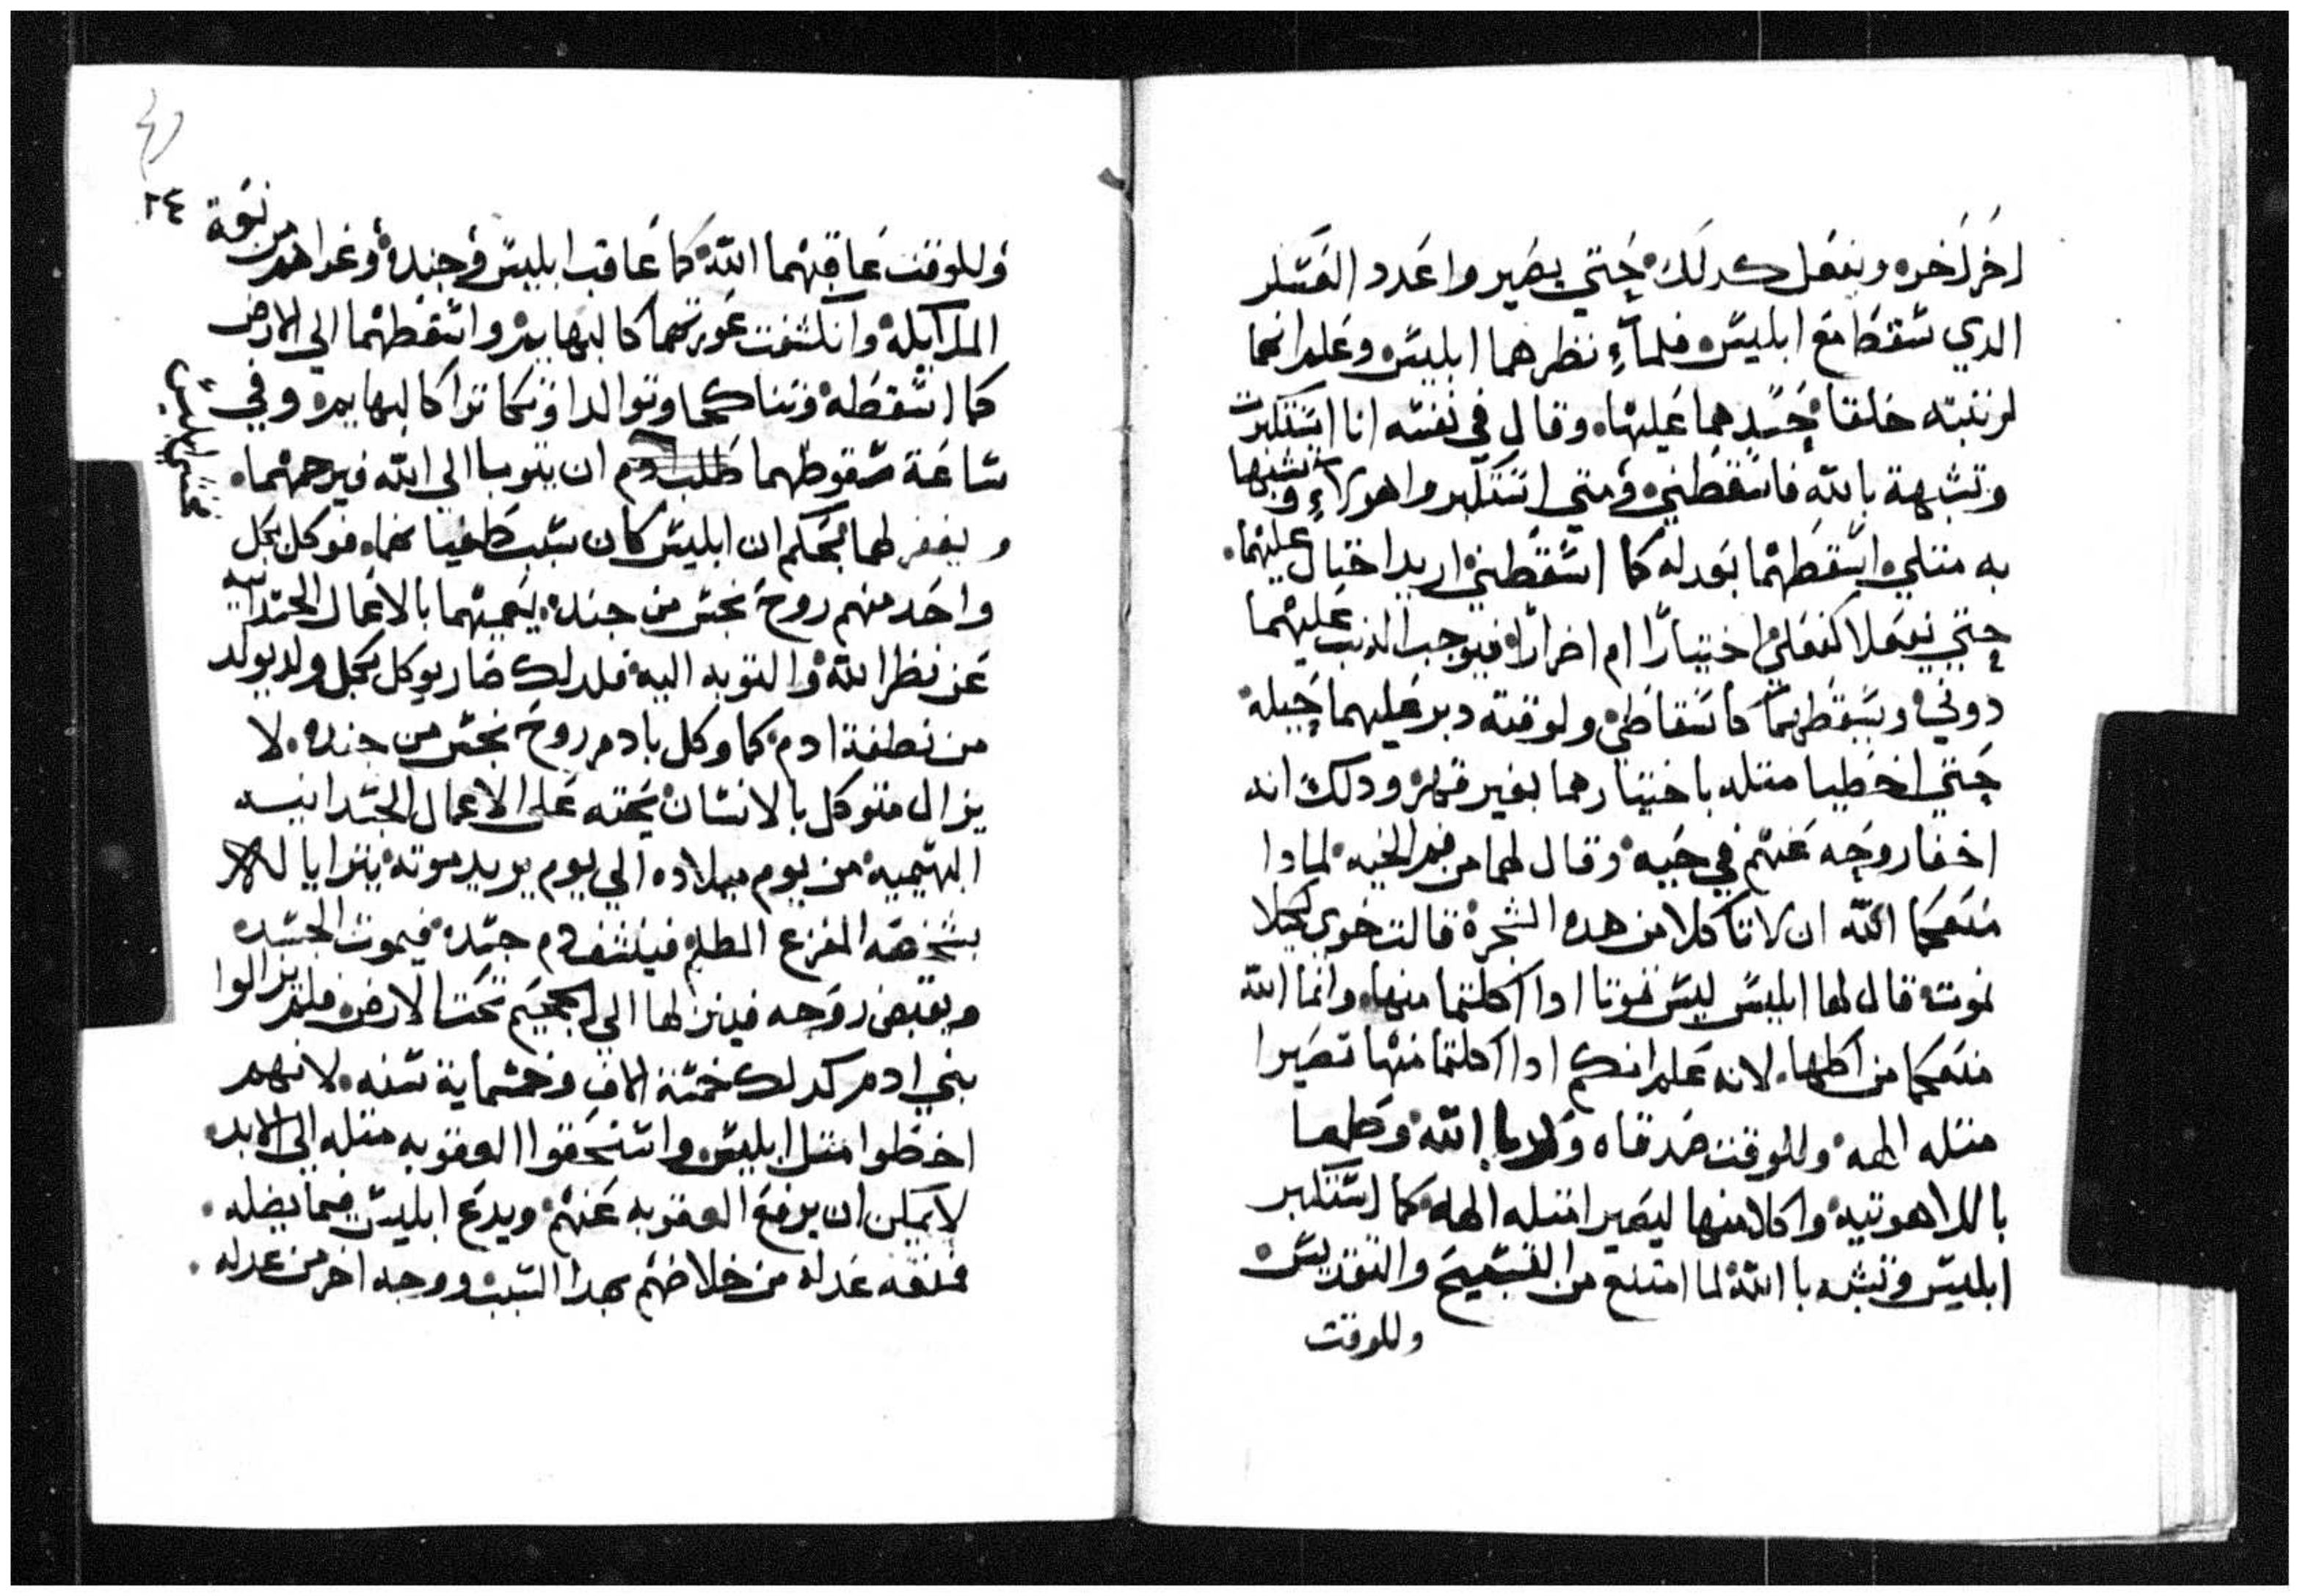 اخر لخره ويفعل كدلك حتي يصيروا عدد العسكر
الدي سقط مع ابليس فلما نظرهما ابليس وعلم انهما
لرتبته خلقا حسدهما عليها وقال في نفسه انا استكبرت
وتشبهة بالله فاسقطني ومتي استكبروا هولاء وتشبها
به متلي اسقطهما بعدله كما اسقطني اريد احتال عليهما
حتي يفعلا كفعلي اختيارًا ام اضرارًا فيوجب الدنب عليهما
دوني ويسقطهما كاسقاطي ولوقته دبر عليهما حيلة
حتي اخطيا متله باختيارهما بغير قهر ودلك انه
اخفا روحه عنهم في حيه وقال لهما من فم الحيه لمادا
منعكما الله ان لا تاكلا من هده الشجرة قالت حوي لكيلا
نموت قال لها ابليس ليس تموتا ادا اكلتما منها وانما الله
منعكما من اكلها لانه علم انكم ادا اكلتما منها تصيرا
متله الهة وللوقت صدقاه الله وطمعا
باللاهوتيه واكلا منها ليصيرا متله الهة كما استكبر
ابليس وتشبه باالله لما امتنع من التسبيح والتقديس
وللوقت
٢٤
وللوقت عاقبهما الله كما عاقب ابليس وجنده وعراهم من نعمة
الملايكة وانكشفت عورتهما كالبهايم واسقطهما الي الارض
كما اسقطه وتناكحا وتوالدا كالبهايم وفي
ساعة سقوطهما طلب ادم ان يتوبا الي الله فيرحمهما
ويغفر لهما بحكم ان ابليس كان سبب طغيانهما فوكل بكل
واحد منهم روح نجس من جنده يعميهما بالاعمال الجسدانيه
عن نظر الله والتوبه اليه فلدلك صار يوكل بكل ولد يولد
من نطفة ادم كما وكل بادم روح نجس من جنده لا
يزال متوكل بالانسان يحته علي الاعمال الجسدانيه
البهيميه من يوم ميلاده الي يوم يريد موته يترايا له
بشخصه المفزع المظلم فينشف دم جسده فيموت الجسد
ويقبض روحه فينزلها الي الجحيم تحت الارض فلم يزالوا
بني ادم كدلك خمسة الاف وخمسماية سنه لانهم
اخطوا متل ابليس واستحقوا العقوبه متله الي الابد
لا يمكن ان يرفع العقوبه عنهم ويدع ابليس فيما يضله
فمنعه عدله من خلاصهم بهدا السبب ووجه اخر من عدله